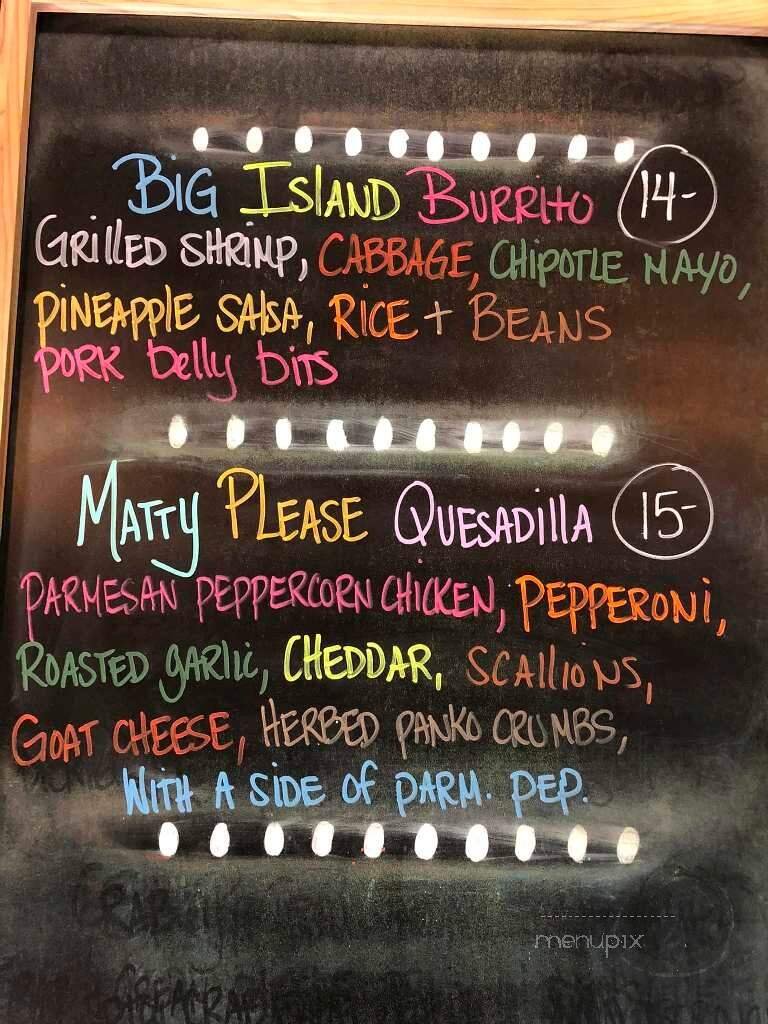 BiG ISLAND BURRITO 14-
GRILLED SHRIMP, CABBAGE, CHIPOTLE MAYO,
PINEAPPLE SALSA, RICE + BEANS
PORK belly bits
MATTY PLEASE QUESADILLA 15-
PARMESAN PEPPERCORN CHICKEN, PEPPERONi,
ROASTED GARLIC, CHEDDAR, SCALLIONS,
GOAT CHEESE, HERBED PANKO CRUMBS,
WITH A SIDE OF PARM. PEP.
CRAB
menupix